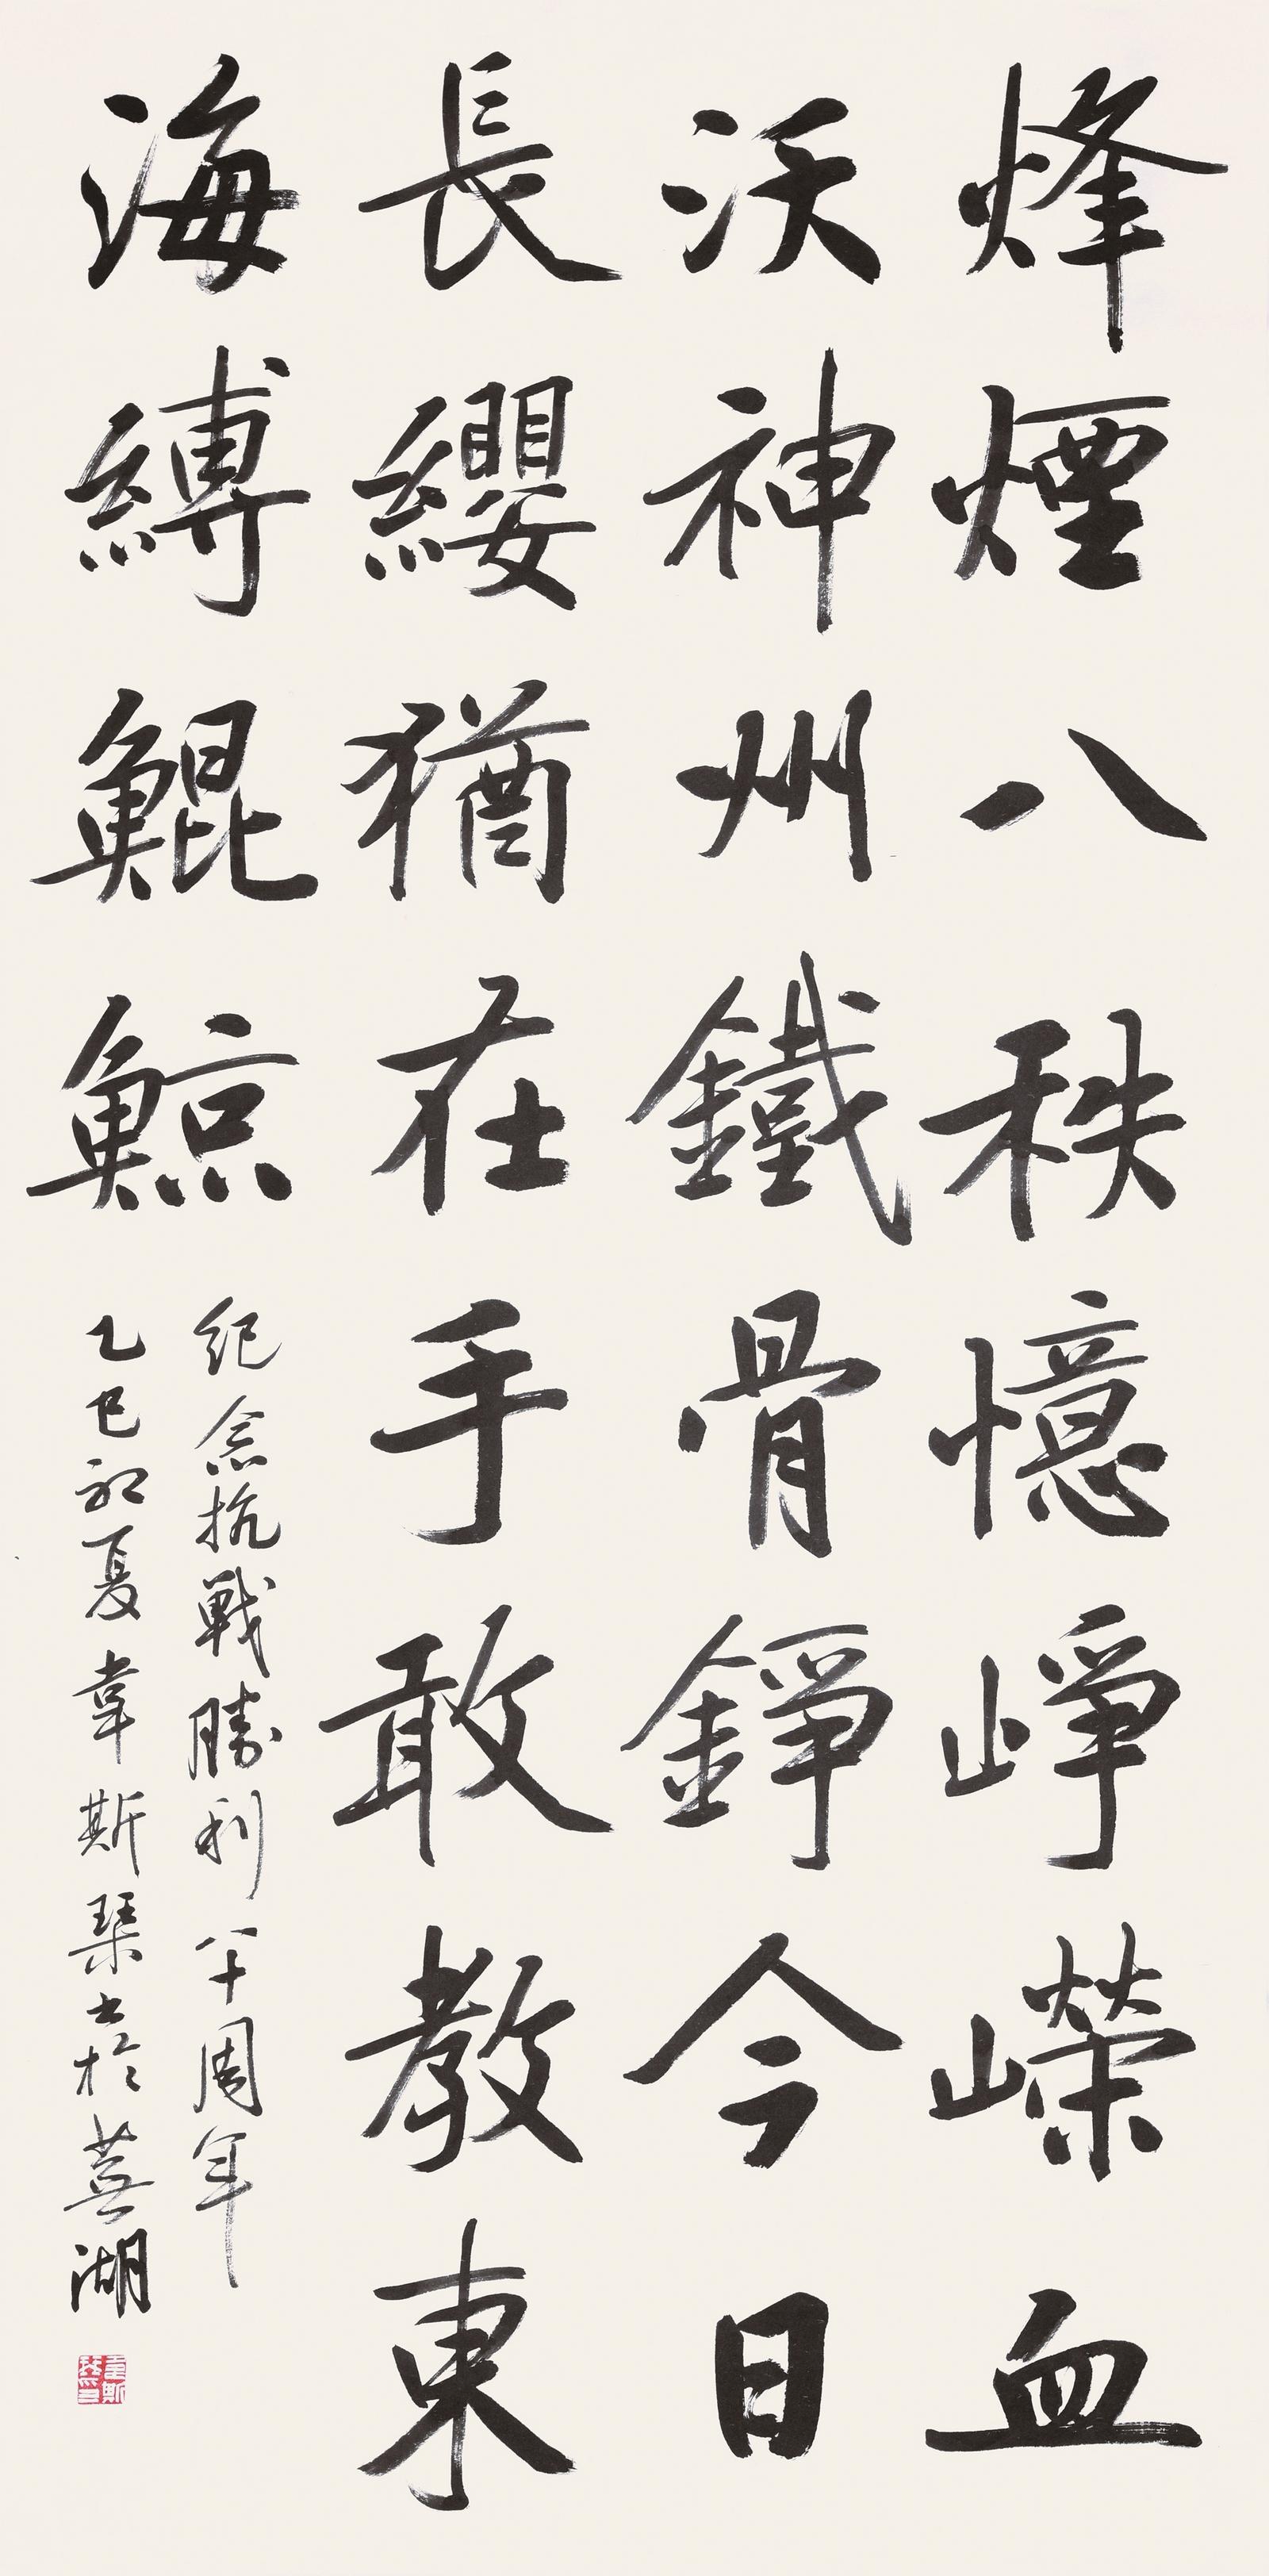 烽煙八秩憶崢嶸血
沃神州鐵骨錚今日
長纓猶在手敢教東
海縛鯤鯨
紀念抗戰勝利八十周年
乙巳初夏韋斯琹書於蕪湖
韋斯琹印